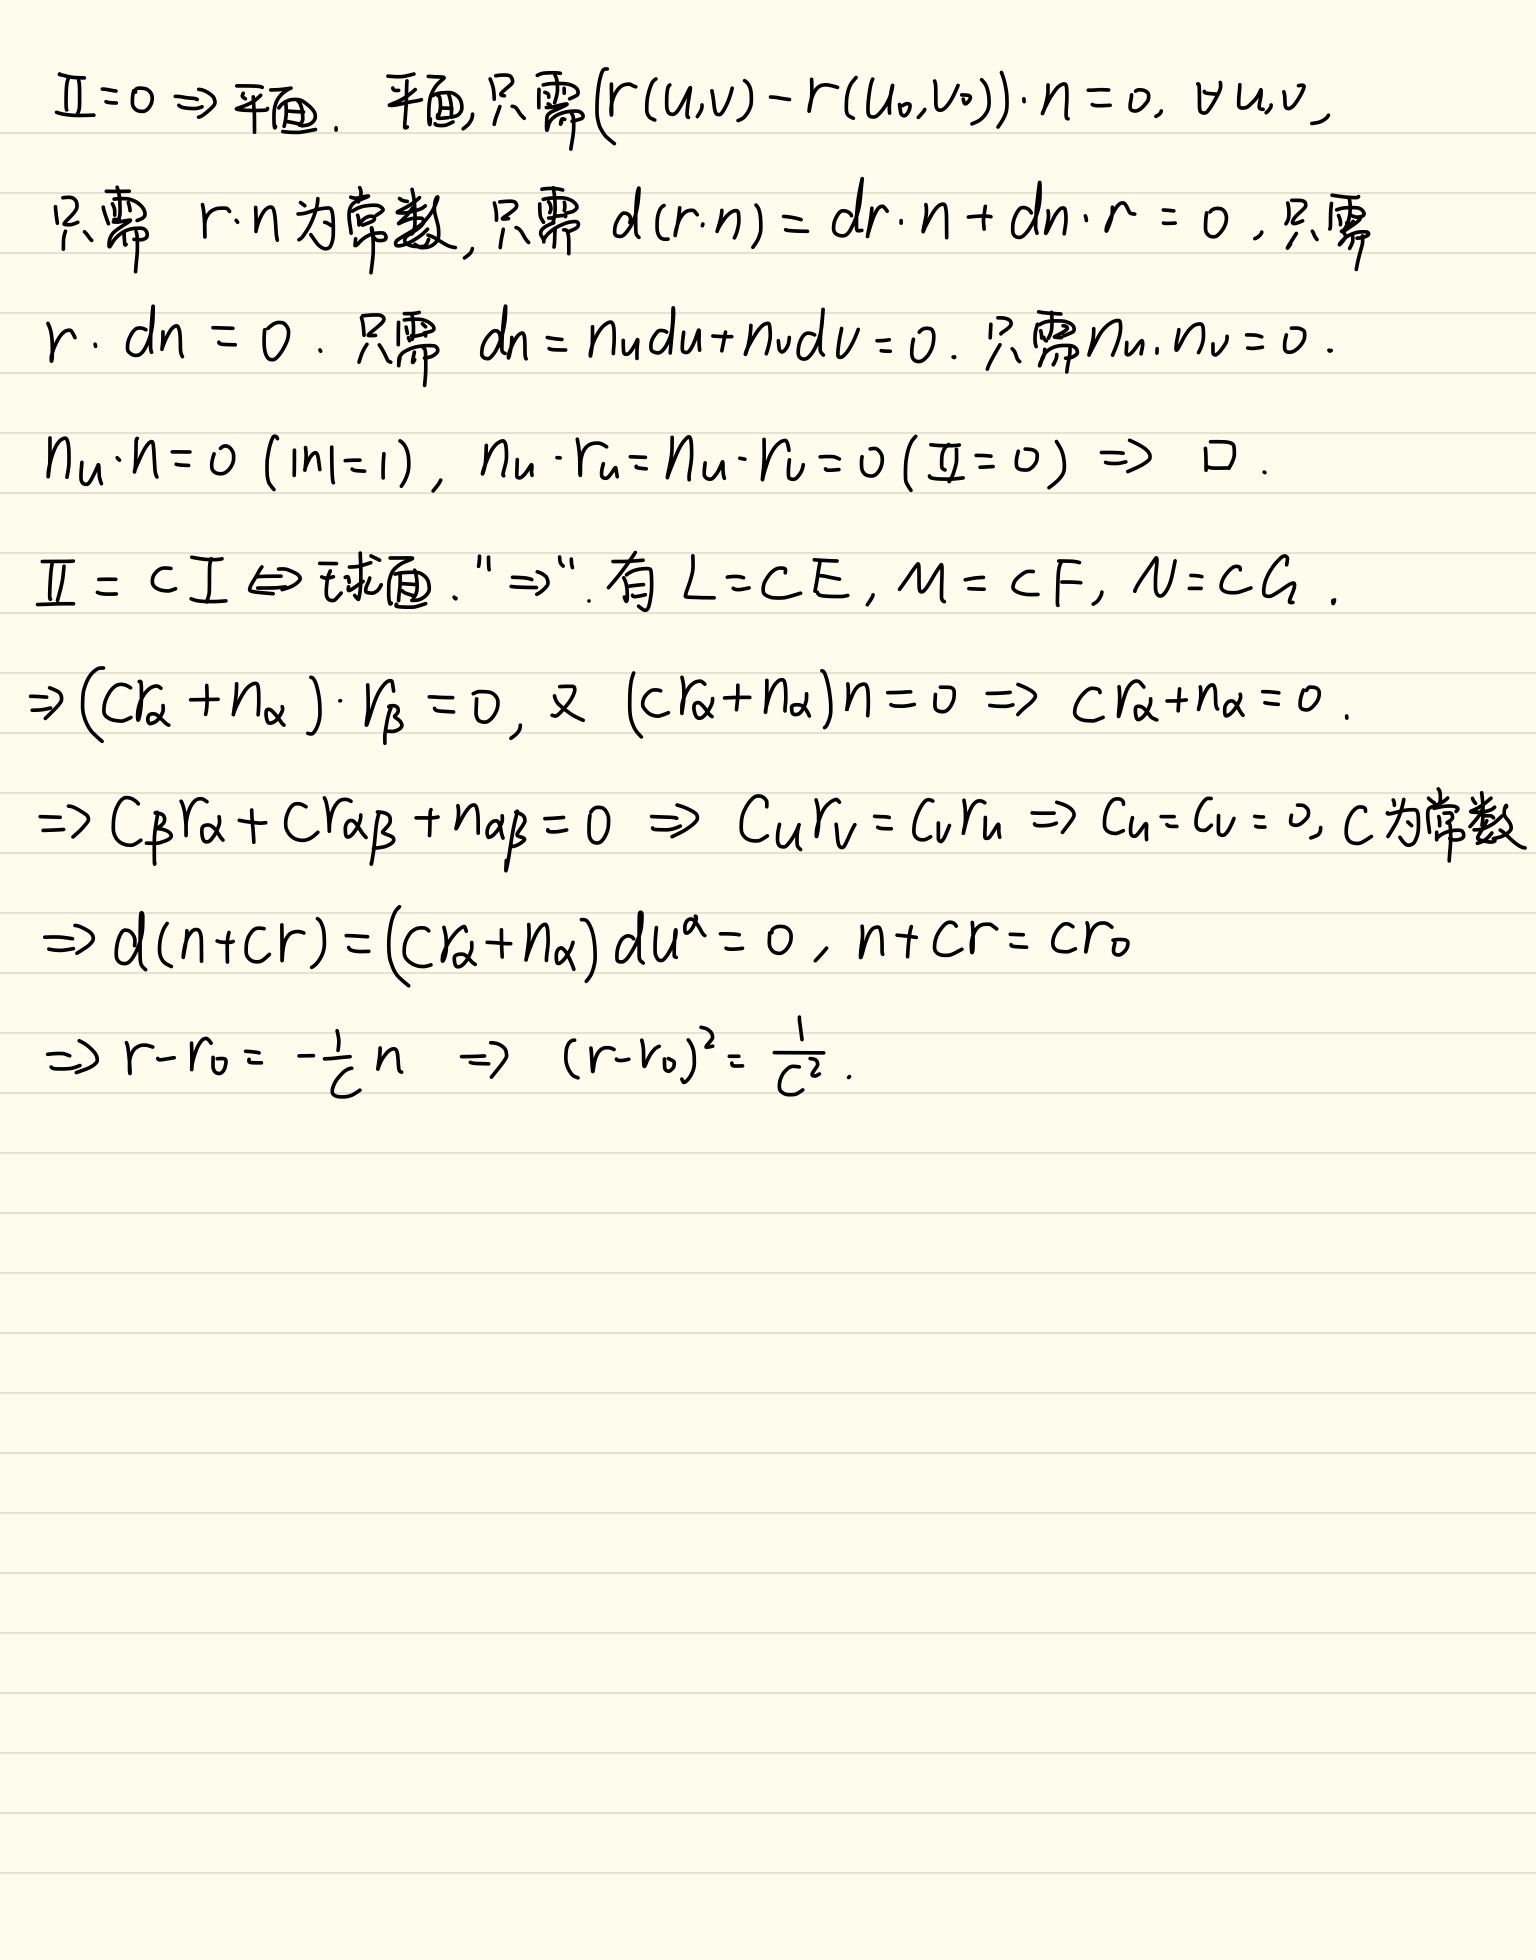 Ⅱ=0 ⇒ 平面. 平面,只需(r(u,v)-r(u₀,v₀))·n=0, ∀u,v,
只需 r·n为常数,只需 d(r·n)=dr·n+dn·r=0,只需
r·dn=0. 只需 dn=nᵤdu+nᵥdv=0. 只需nᵤ,nᵥ=0.
nᵤ·n=0 (|n|=1), nᵤ·rᵤ=nᵤ·rᵥ=0 (Ⅱ=0) ⇒ □.
Ⅱ=cⅠ⇔球面. "⇒". 有 L=cE, M=cF, N=cG.
⇒(cr_α+n_α)·r_β=0, 又 (cr_α+n_α)n=0 ⇒ cr_α+n_α=0.
⇒ c_βr_α+cr_αβ+n_αβ=0 ⇒ cᵤrᵥ=cᵥrᵤ ⇒ cᵤ=cᵥ=0, c为常数
⇒ d(n+cr)=(cr_α+n_α)du^α=0, n+cr=cr₀
⇒ r-r₀=-1/c n ⇒ (r-r₀)²=1/c².